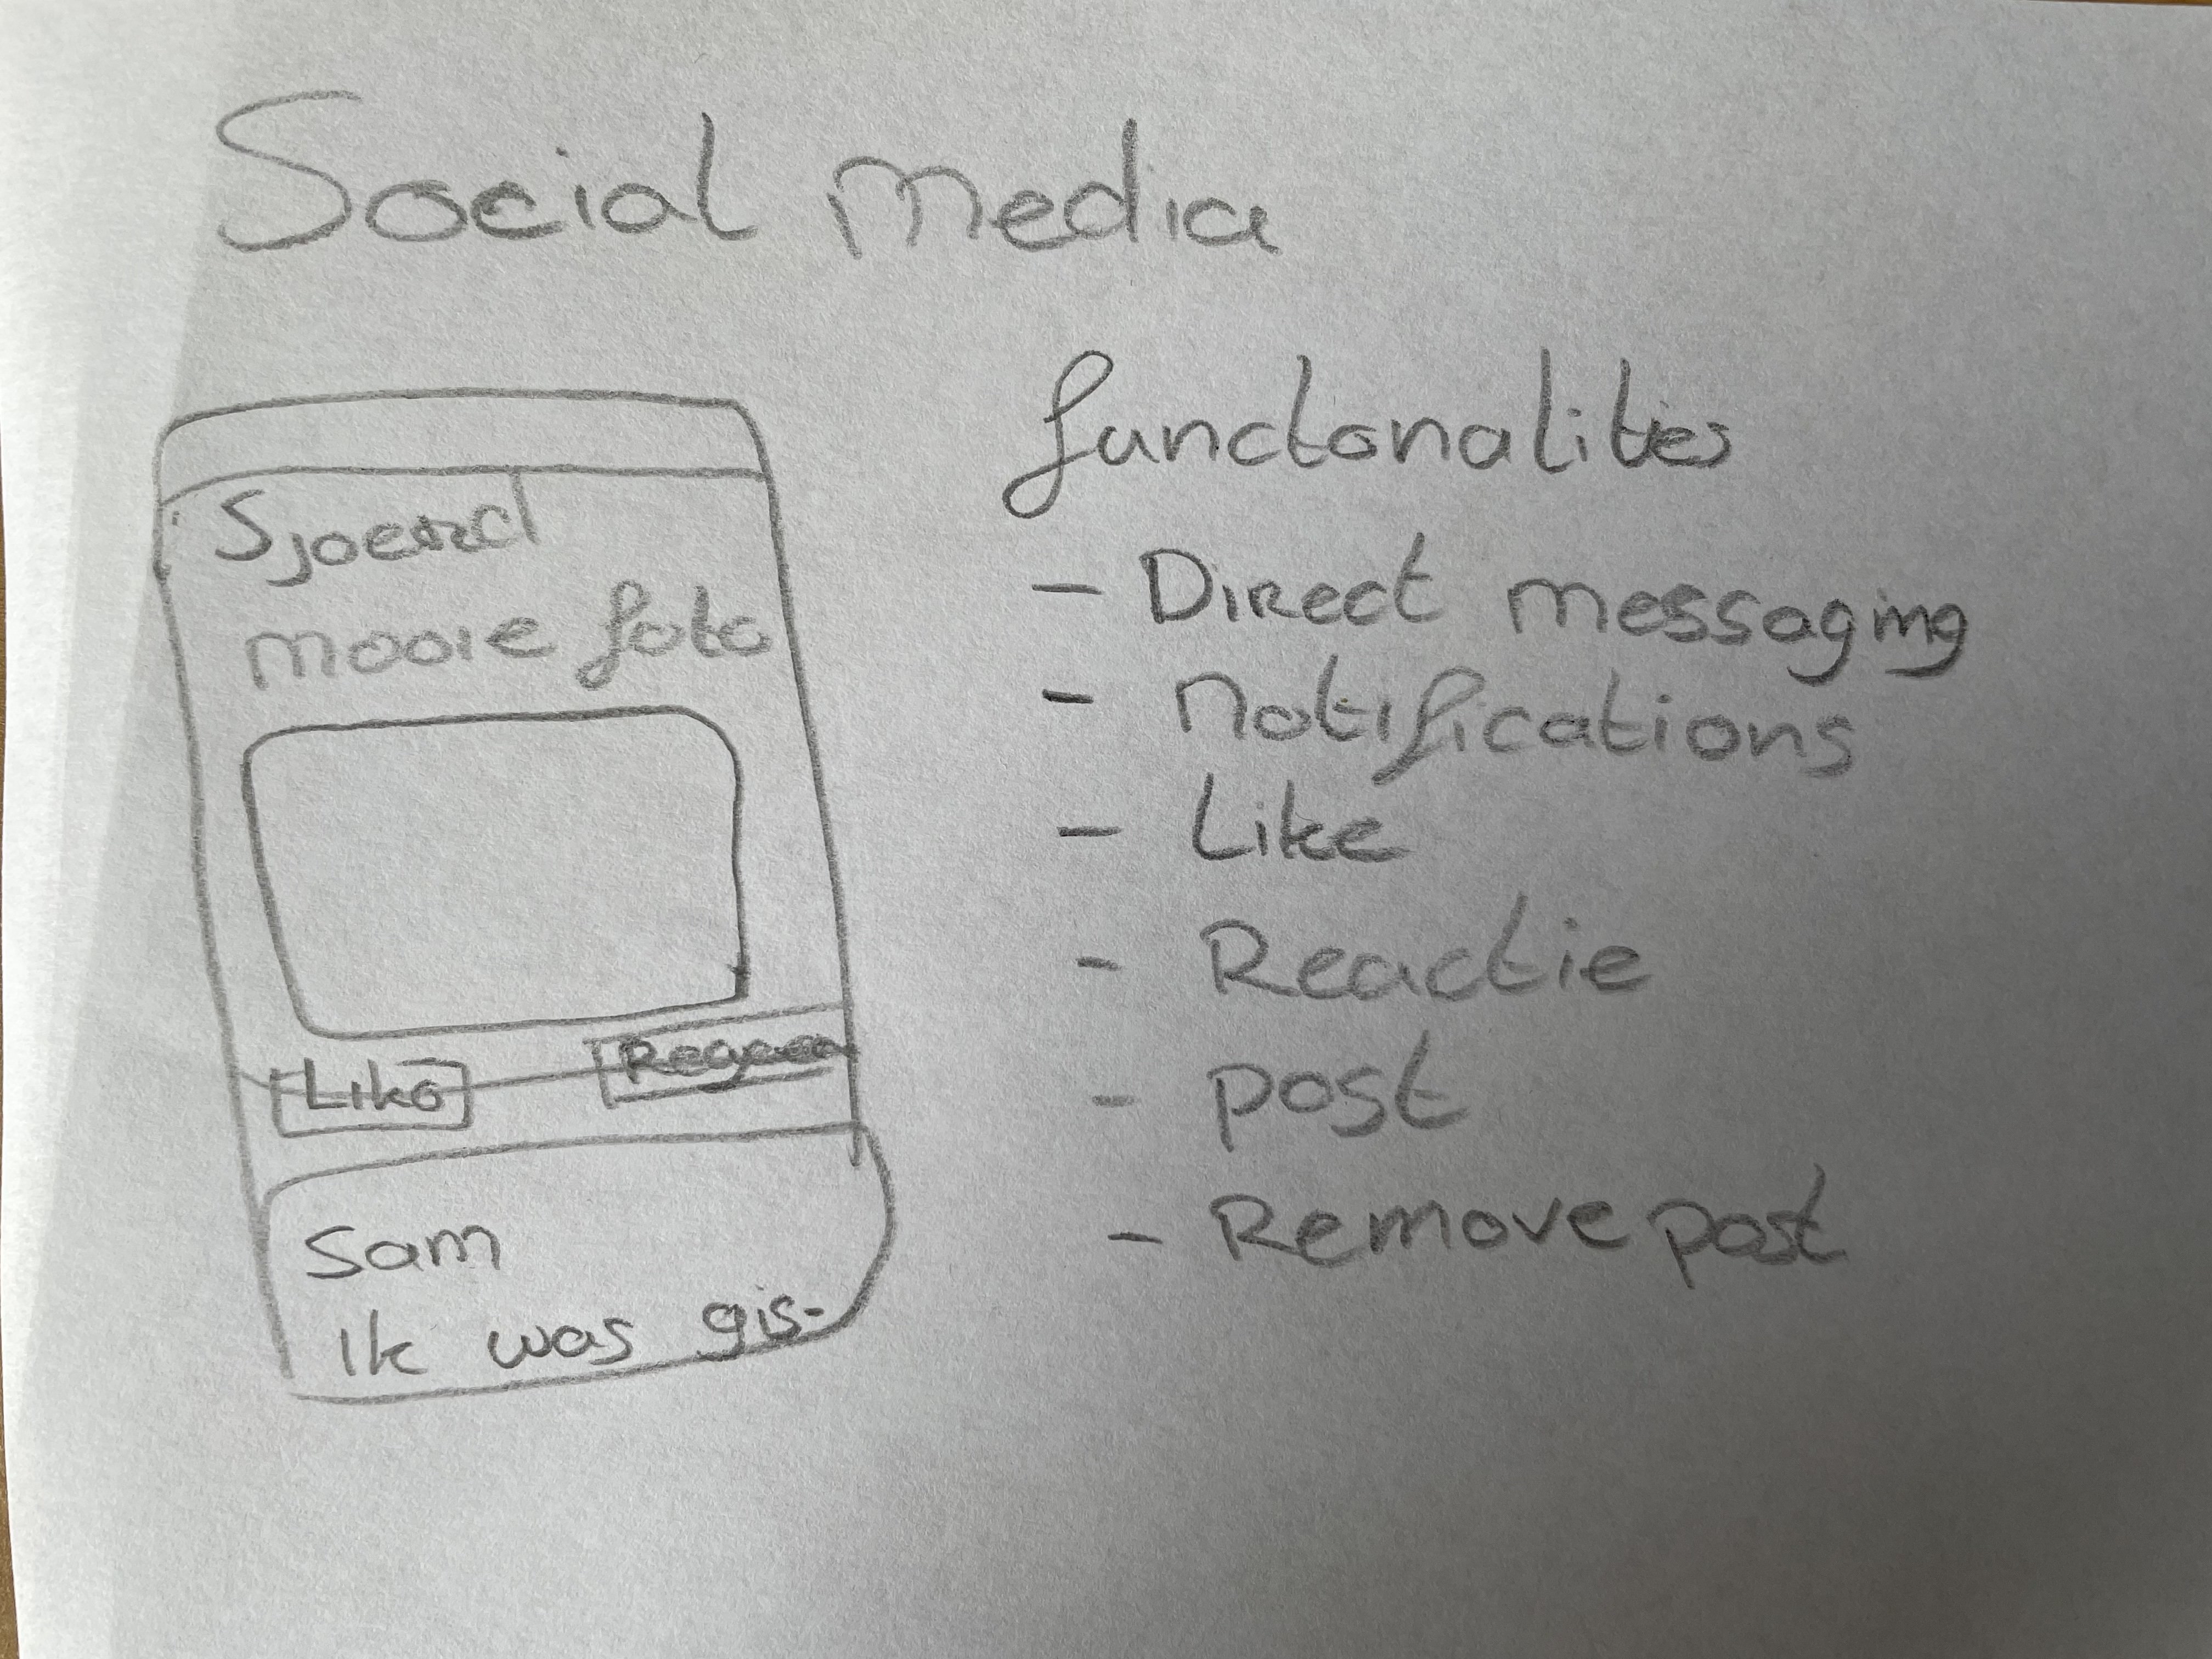 Social Media
Sjoerd
mooie foto
Like
Sam
Ik was gis-
functonalities
- Direct messaging
- Notifications
- Like
- Reactie
- post
- Remove post